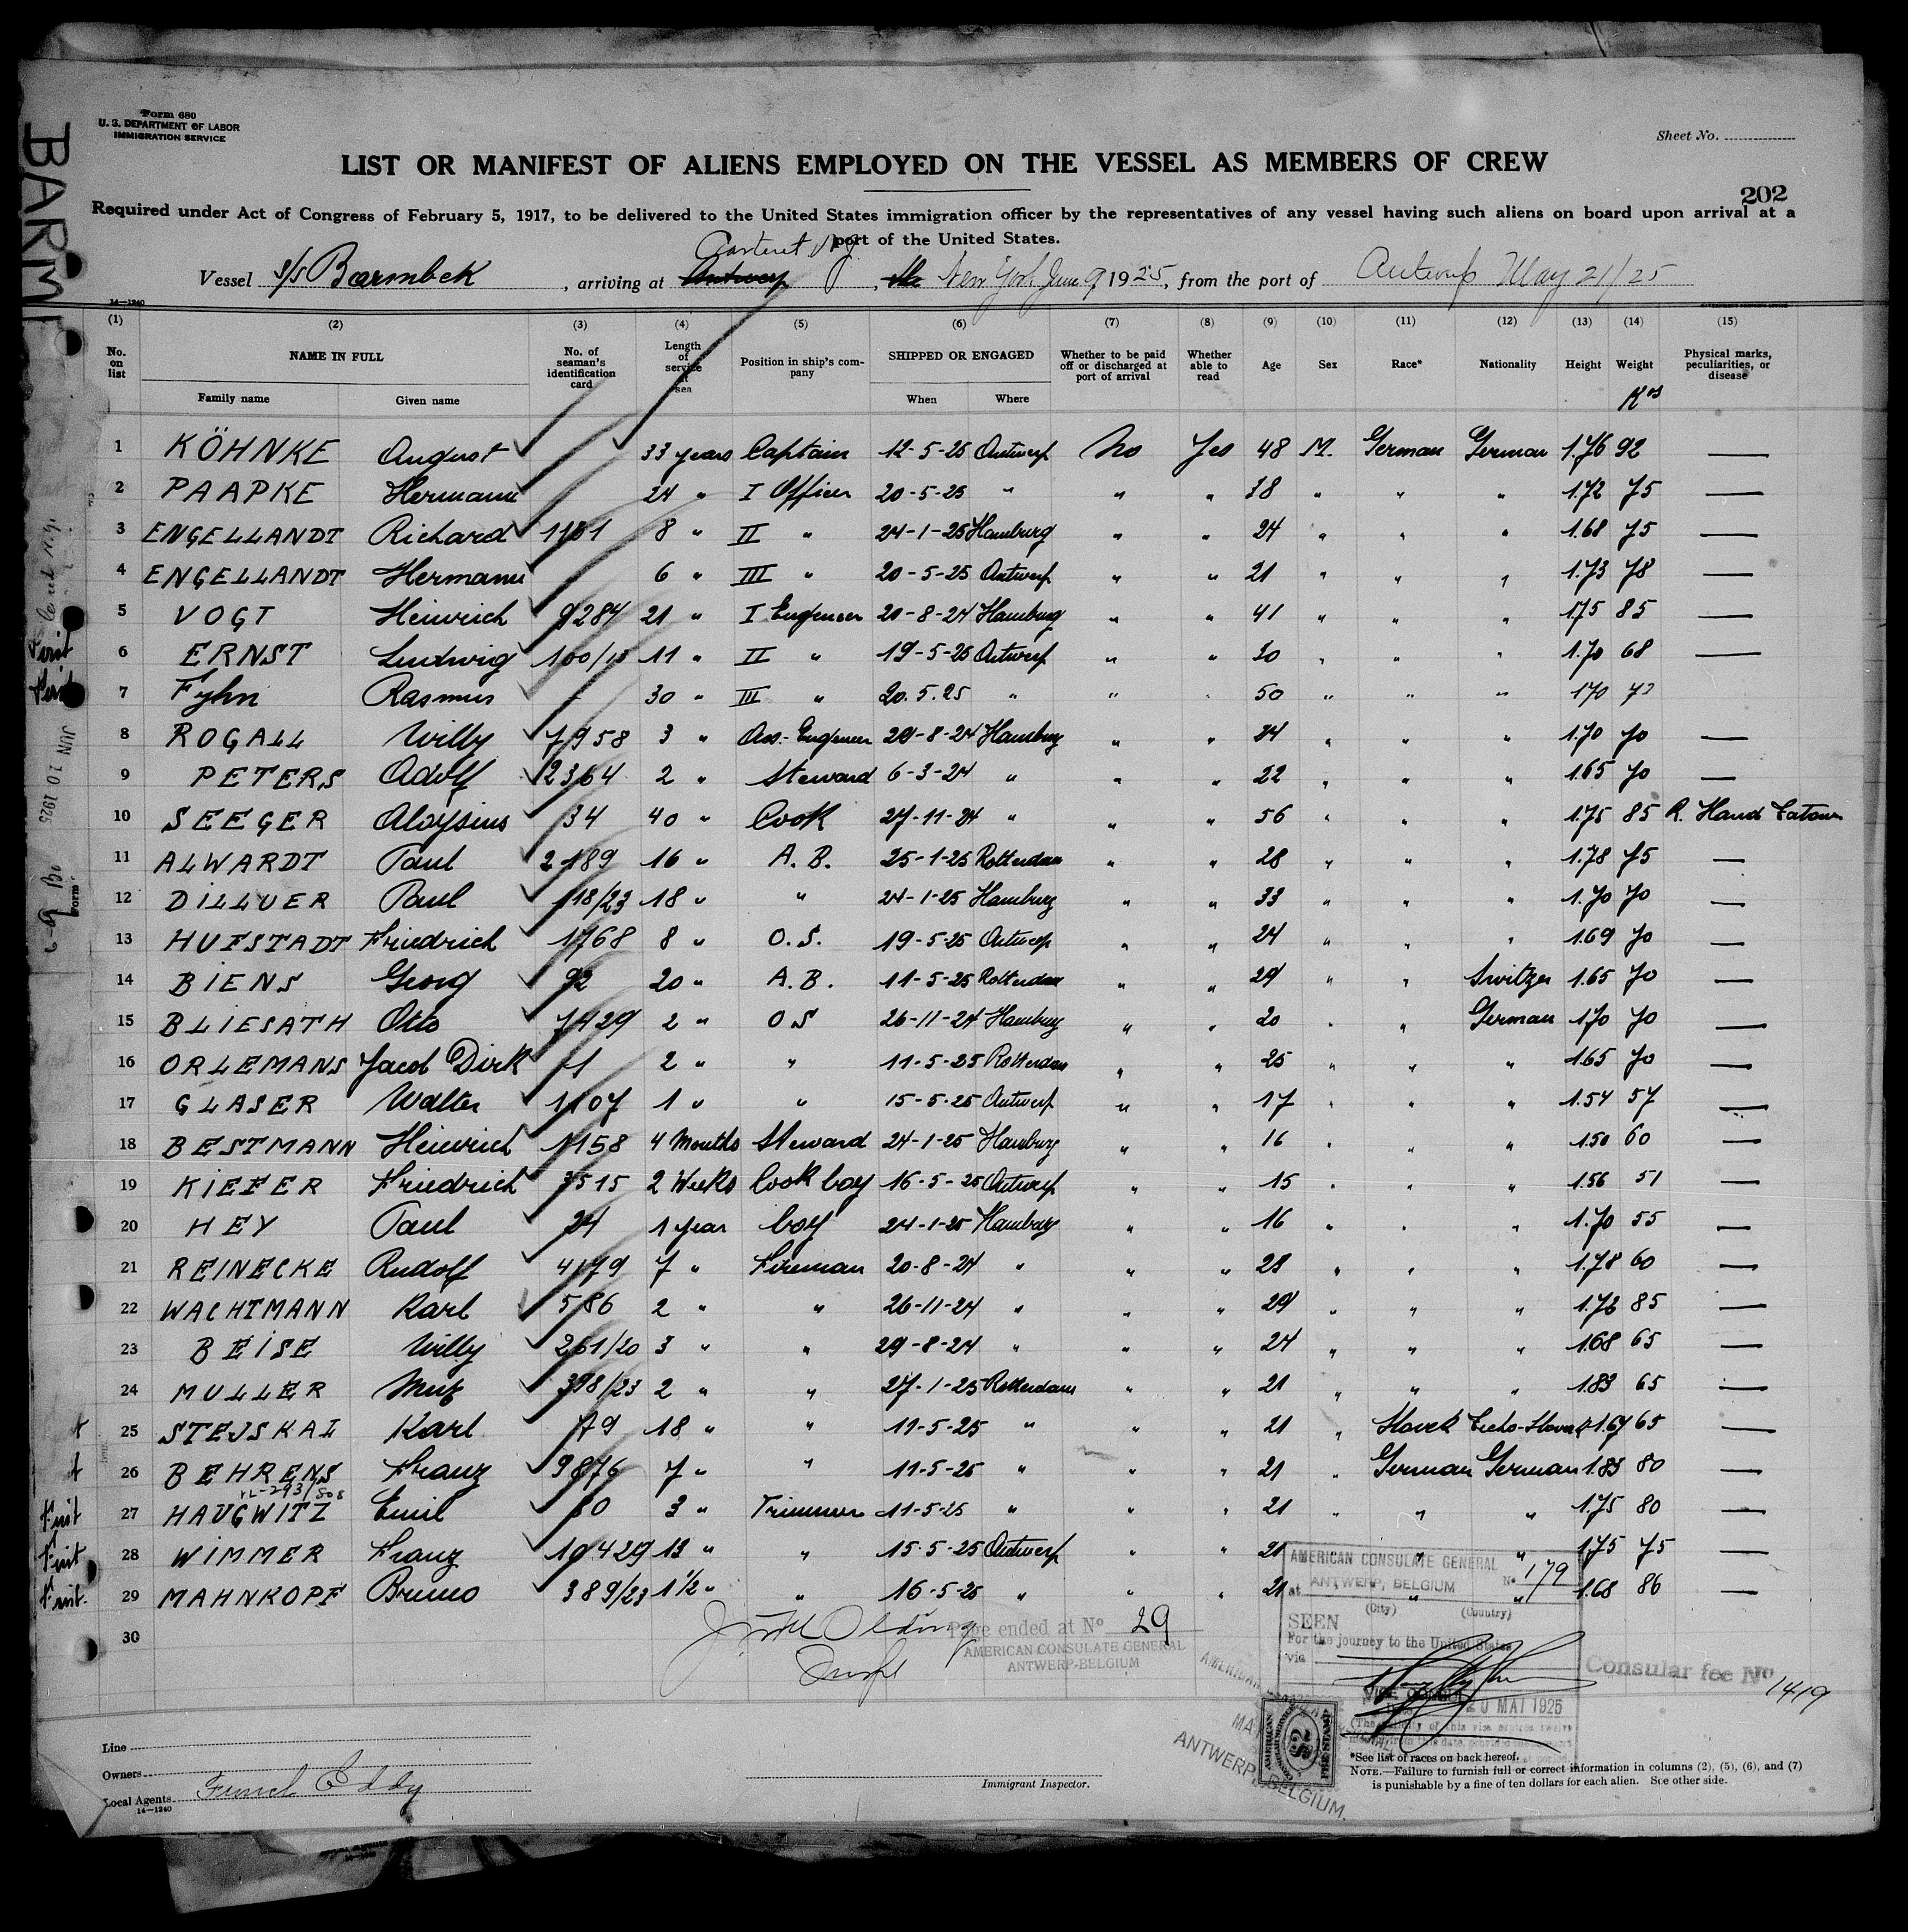 Form 680
U. S. DEPARTMENT OF LABOR
IMMIGRATION SERVICE
Sheet No.
LIST OR MANIFEST OF ALIENS EMPLOYED ON THE VESSEL AS MEMBERS OF CREW
202
Required under Act of Congress of February 5, 1917, to be delivered to the United States immigration officer by the representatives of any vessel having such aliens on board upon arrival at a
port of the United States.
Carteret N J
Vessel s/s Barmbek, arriving at Antwerp, New York June 9, 1925, from the port of Antwerp May 21/25
14—1240
(1) (2) (3) (4) (5) (6) (7) (8) (9) (10) (11) (12) (13) (14) (15)
No. on list NAME IN FULL No. of seaman's identification card Length of service at sea Position in ship's company SHIPPED OR ENGAGED Whether to be paid off or discharged at port of arrival Whether able to read Age Sex Race* Nationality Height Weight Physical marks, peculiarities, or disease
Family name Given name When Where Kos
1 KÖHNKE August 33 years Captain 12-5-25 Antwerp No Yes 48 M. German German 1.76 92 —
2 PAAPKE Hermann 24 " I Officer 20-5-25 " " " 38 " " " 1.72 75 —
3 ENGELLANDT Richard 1101 8 " II " 24-1-25 Hamburg " " 24 " " " 1.68 75 —
4 ENGELLANDT Hermann 6 " III " 20-5-25 Antwerp " " 21 " " " 1.73 78 —
5 VOGT Heinrich 9284 21 " I Engeneer 20-8-24 Hamburg " " 41 " " " 175 85 —
6 ERNST Ludwig 100/13 11 " II " 19-5-25 Antwerp " " 30 " " " 1.70 68 —
7 Fyhn Rasmus - 30 " III " 20.5.25 " " " 50 " " " 170 72
8 ROGALL Willy 7958 3 " Ass-Engeneer 29-8-24 Hamburg " " 24 " " " 1.70 70 —
9 PETERS Adolf 12364 2 " Steward 6-3-24 " " " 22 " " " 1.65 70 —
10 SEEGER Aloysius 34 40 " Cook 27-11-24 " " " 56 " " " 1.75 85 R. Hand
11 ALWARDT Paul 2189 16 " A. B. 25-1-25 Rotterdam " " 28 " " " 1.78 75 —
12 DILLUER Paul 118/23 18 " " 24-1-25 Hamburg " " 33 " " " 1.70 70 —
13 HUFSTADT Friedrich 1768 8 " O. S. 19-5-25 Antwerp " " 24 " " " 1.69 70 —
14 BIENS Georg 92 20 " A. B. 11-5-25 Rotterdam " " 29 " " Switzer 1.65 70 —
15 BLIESATH Otto 7429 2 " O S 26-11-24 Hamburg " " 20 " " German 170 70 —
16 ORLEMANS Jacob Dirk 1 2 " " 11-5-25 Rotterdam " " 25 " " " 1.65 70 —
17 GLASER Walter 1107 1 " " 15-5-25 Antwerp " " 17 " " " 1.54 57 —
18 BESTMANN Heinrich 1158 4 Months Steward 24-1-25 Hamburg " " 16 " " " 1.50 60 —
19 KIEFER Friedrich 3515 2 Weeks Cook boy 16-5-25 Antwerp " " 15 " " " 1.56 51 —
20 HEY Paul 24 1 year boy 24-1-25 Hamburg " " 16 " " " 1.70 55 —
21 REINECKE Rudolf 4179 7 " Fireman 20-8-24 " " " 28 " " " 1.78 60 —
22 WACHTMANN Karl 586 2 " " 26-11-24 " " " 29 " " " 1.72 85 —
23 BEISE Willy 261/20 3 " " 29-8-24 " " " 24 " " " 1.68 65 —
24 MULLER 398/23 2 " " 27-1-25 Rotterdam " " 21 " " " 1.83 65 —
25 STEJSKAL Karl 79 18 " " 11-5-25 " " " 21 " Slovek Checho-Slovak 1.67 65 —
26 BEHRENS Franz 9876 7 " " 11-5-25 " " " 21 " German German 1.83 80 —
27 HAUGWITZ Emil 80 3 " Trimmer 11-5-25 " " " 21 " " " 1.75 80 —
28 WIMMER Franz 19429 13 " " 15-5-25 Antwerp " " 21 " " 1.75 75 —
29 MAHNKOPF Bruno 389/23 1½ " " 16-5-25 " " " 21 " " 1.68 86 —
30
Page ended at No 29
AMERICAN CONSULATE GENERAL
ANTWERP-BELGIUM
AMERICAN CONSULATE GENERAL
at ANTWERP, BELGIUM No 179
(City) (Country)
SEEN
For the journey to the United States
via
VICE CONSUL
20 MAI 1925
Consular fee No 1419
AMERICAN
FEE STAMP
ANTWERP, BELGIUM.
Line
Owners
Local Agents Funch Edy
14—1240
Immigrant Inspector.
*See list of races on back hereof.
NOTE.—Failure to furnish full or correct information in columns (2), (5), (6), and (7)
is punishable by a fine of ten dollars for each alien. See other side.
JUN 10 1925